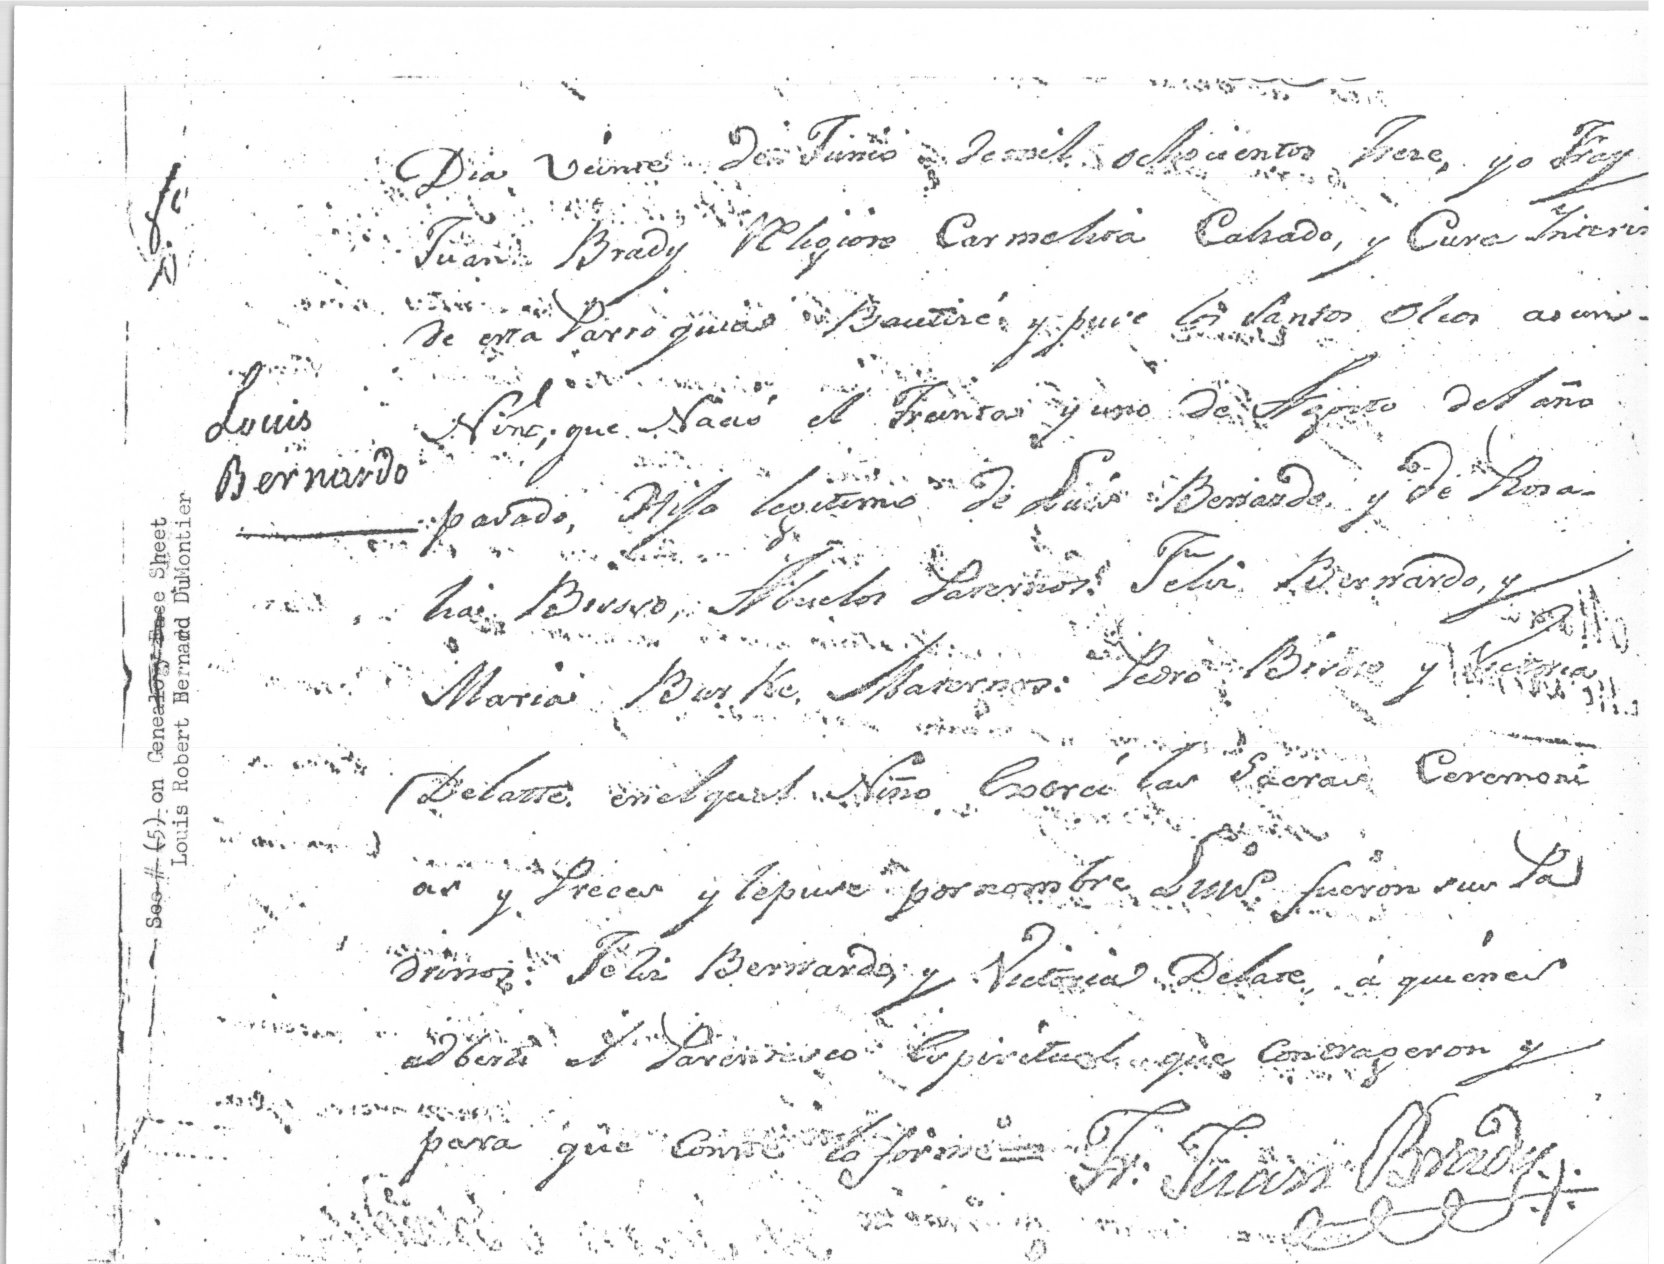 Dia veinte de Junio de mil ochocientos Trese, yo Fray
Juan Brady Religioso Carmelita Calzado, y Cura Interin
de esta Parroquia Bautisé y puse los Santos Oleos a un
Niño, que Nació el Treinta y uno de Agosto del año
Louis
Bernardo
pasado, Hijo legitimo de Luis Bernardo y de Rosa-
lia Birovo, Abuelos Paternos: Felix Bernardo, y
Maria Burke, Maternos: Pedro Birovo y Victoria
Delatte en el qual Niño Exorcé las Sacras Ceremoni
as y Preces y le puse por nombre Luis fueron sus Pa
drinos: Felix Bernardo, y Victoria Delate, á quienes
adberti el Parentesco Espiritual que contrageron y
para que conste lo firmé = Fr. Juan Brady
See # (5) on Genealogy Base Sheet
Louis Robert Bernard DuMontier